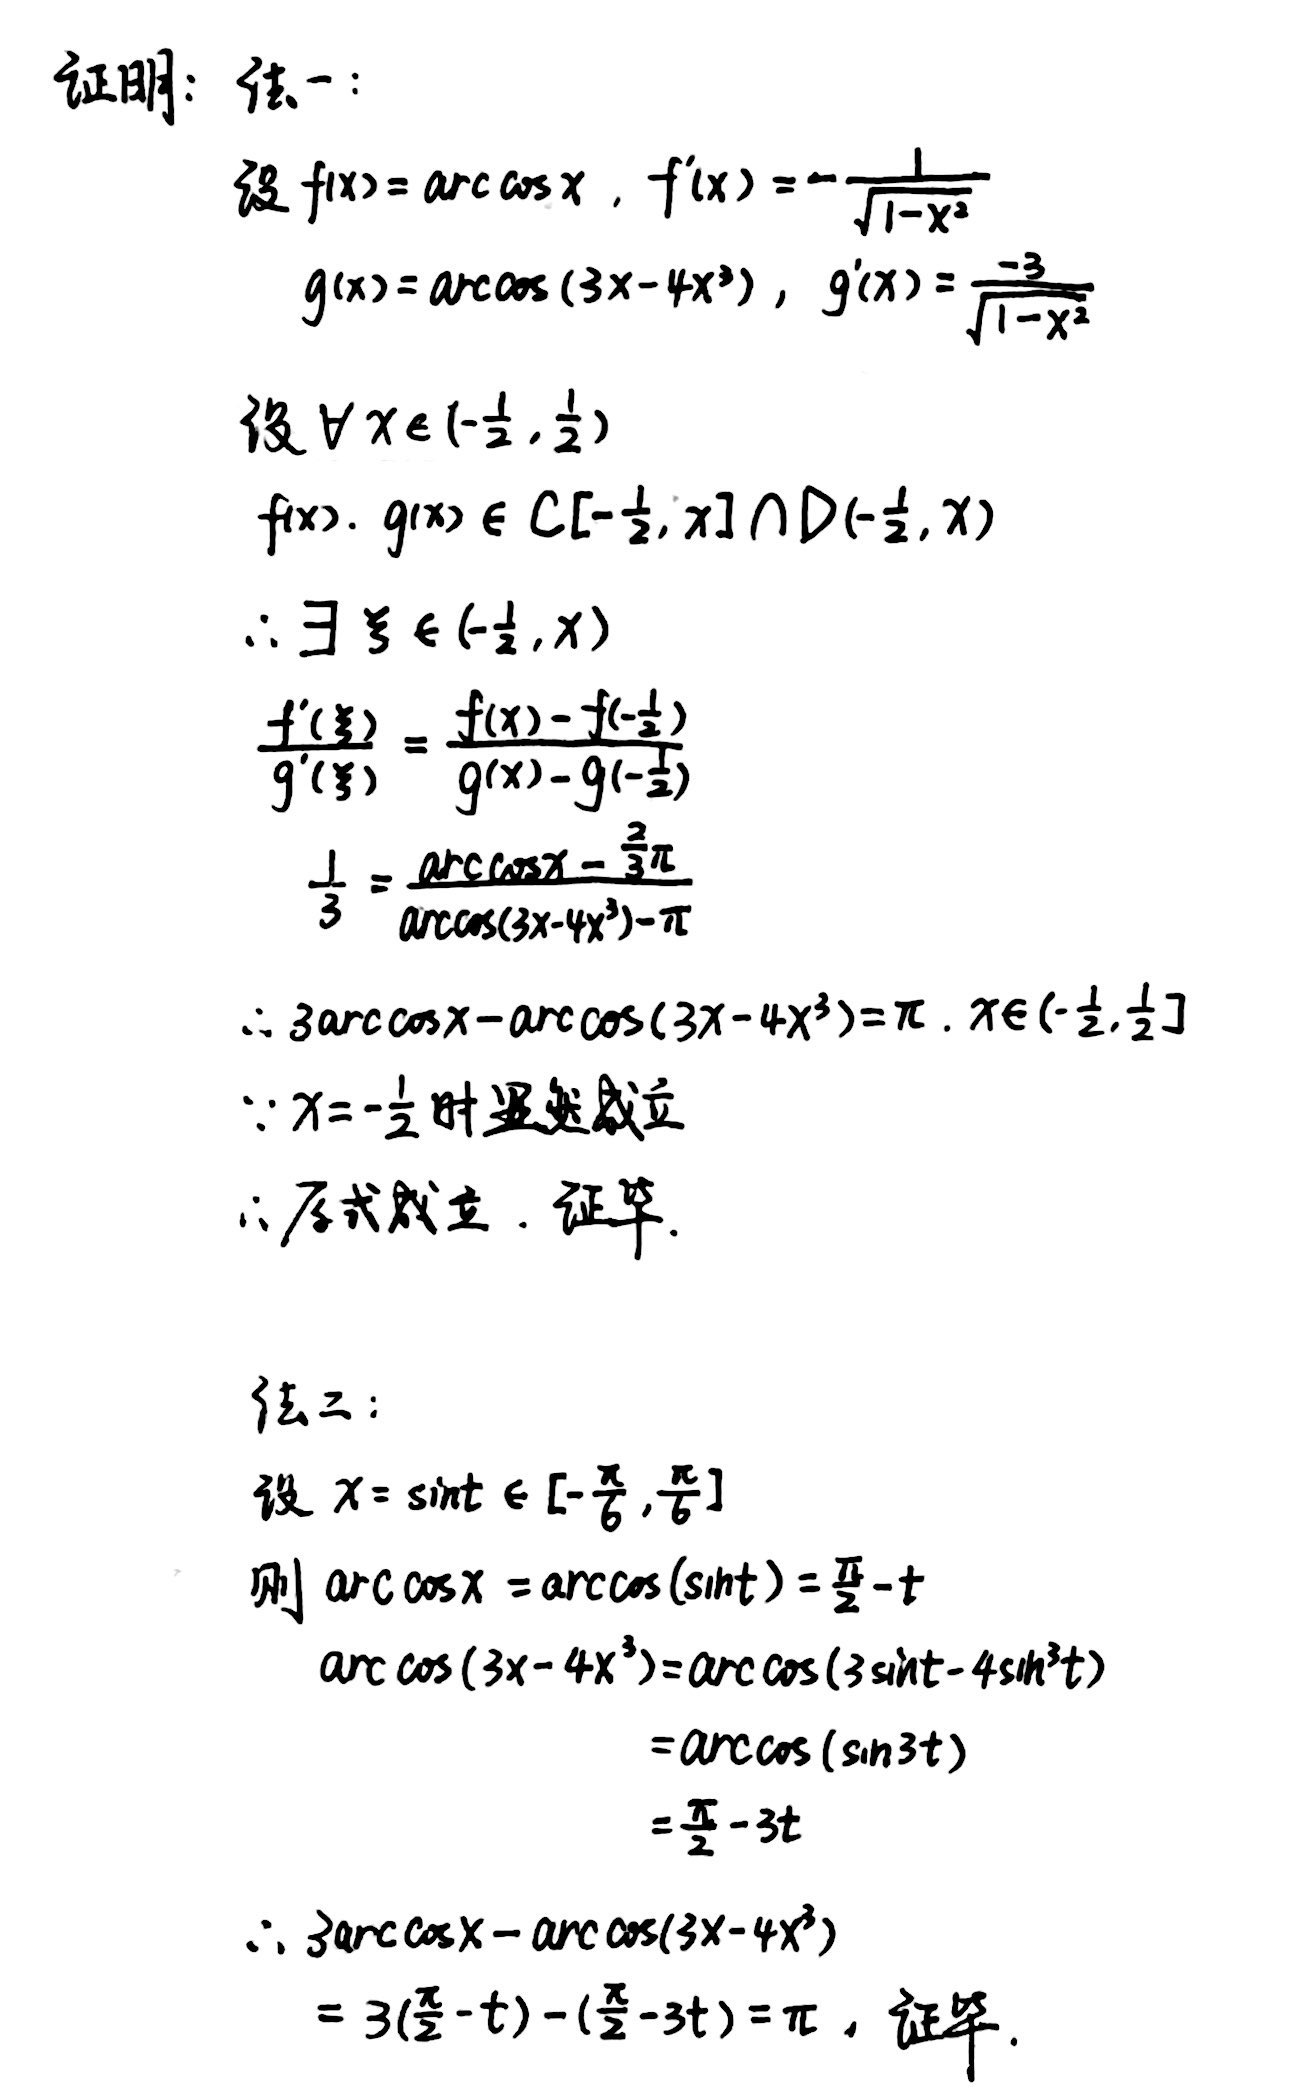 证明: 法一:
设 f(x) = arccosx , f'(x) = -\frac{1}{\sqrt{1-x²}}
g(x) = arccos(3x-4x³) , g'(x) = \frac{-3}{\sqrt{1-x²}}
设 ∀ x ∈ (-\frac{1}{2}, \frac{1}{2})
f(x). g(x) ∈ C[-\frac{1}{2}, x] ∩ D(-\frac{1}{2}, x)
∴ ∃ ξ ∈ (-\frac{1}{2}, x)
\frac{f'(ξ)}{g'(ξ)} = \frac{f(x)-f(-\frac{1}{2})}{g(x)-g(-\frac{1}{2})}
\frac{1}{3} = \frac{arccosx-\frac{2}{3}π}{arccos(3x-4x³)-π}
∴ 3arccosx-arccos(3x-4x³)=π . x∈(-\frac{1}{2}, \frac{1}{2}]
∵ x=-\frac{1}{2} 时显然成立
∴ 原式成立 . 证毕.
法二:
设 x = sint ∈ [-\frac{π}{6}, \frac{π}{6}]
则 arccosx = arccos(sint) = \frac{π}{2}-t
arccos(3x-4x³)=arccos(3sint-4sin³t)
=arccos(sin3t)
=\frac{π}{2}-3t
∴ 3arccosx-arccos(3x-4x³)
= 3(\frac{π}{2}-t)-(\frac{π}{2}-3t)=π , 证毕.